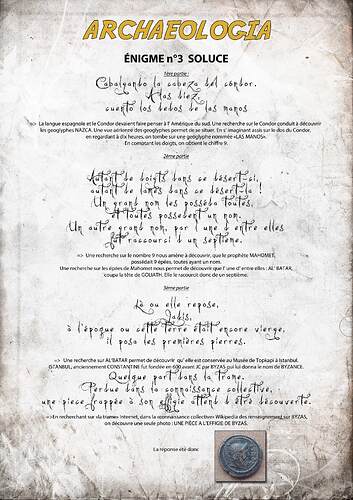 ARCHAEOLOGIA
ÉNIGME n°3 SOLUCE
1ère partie :
Cabalgando la cabeza del condor,
A las diez,
cuento los dedos de las manos
=> La langue espagnole et le Condor devraient faire penser à l' Amérique du sud. Une recherche sur le Condor conduit à découvrir
les géoglyphes NAZCA. Une vue aérienne des géoglyphes permet de se situer. En s' imaginant assis sur le dos du Condor,
en regardant à dix heures, on tombe sur une géoglyphe nommée «LAS MANOS».
En comptant les doigts, on obtient le chiffre 9.
2ème partie
Autant de doigts dans ce désert-ci,
autant de lames dans ce désert-là !
Un grand nom les posséda toutes,
et toutes possèdent un nom.
Un autre grand nom, par l'une d'entre elles
fut raccourci d'un septième.
=> Une recherche sur le nombre 9 nous amène à découvrir, que le prophète MAHOMET,
possédait 9 épées, toutes ayant un nom.
Une recherche sur les épées de Mahomet nous permet de découvrir que l' une d' entre elles : AL' BATAR,
coupa la tête de GOLIATH. Elle le raccourcit donc de un septième.
3ème partie
Là ou elle repose,
Jadis,
à l'époque ou cette terre était encore vierge,
il posa les premières pierres.
=> Une recherche sur AL'BATAR permet de découvrir qu' elle est conservée au Musée de Topkapi à Istanbul.
ISTANBUL, anciennement CONSTANTINE fut fondée en 600 avant JC par BYZAS qui lui donna le nom de BYZANCE.
Quelque part dans la trame,
Perdue dans la connaissance collective,
une pièce frappée à son effigie attend d'être découverte.
=>En recherchant sur «la trame» Internet, dans la connaissance collective» Wikipedia des renseignement sur BYZAS,
on découvre une seule photo : UNE PIÈCE A L'EFFIGIE DE BYZAS.
La réponse été donc